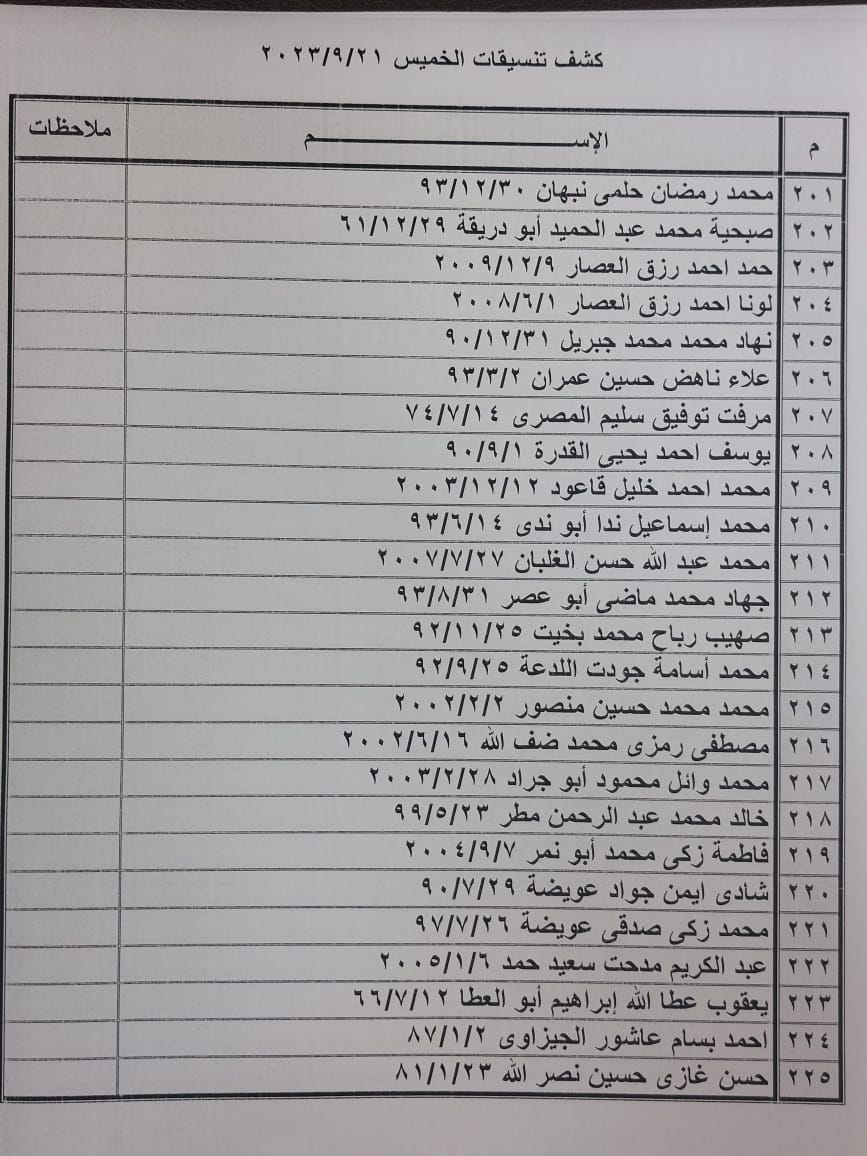 كشف تنسيقات الخميس ٢٠٢٣/٩/٢١
م الإســــــم ملاحظات
٢٠١ محمد رمضان حلمى نبهان ٩٣/١٢/٣٠
٢٠٢ صبحية محمد عبد الحميد أبو دريقة ٦١/١٢/٢٩
٢٠٣ حمد احمد رزق العصار ٢٠٠٩/١٢/٩
٢٠٤ لونا احمد رزق العصار ٢٠٠٨/٦/١
٢٠٥ نهاد محمد محمد جبريل ٩٠/١٢/٣١
٢٠٦ علاء ناهض حسين عمران ٩٣/٣/٢
٢٠٧ مرفت توفيق سليم المصرى ٧٤/٧/١٤
٢٠٨ يوسف احمد يحيى القدرة ٩٠/٩/١
٢٠٩ محمد احمد خليل قاعود ٢٠٠٣/١٢/١٢
٢١٠ محمد إسماعيل ندا أبو ندى ٩٣/٦/١٤
٢١١ محمد عبد الله حسن الغلبان ٢٠٠٧/٧/٢٧
٢١٢ جهاد محمد ماضى أبو عصر ٩٣/٨/٣١
٢١٣ صهيب رباح محمد بخيت ٩٢/١١/٢٥
٢١٤ محمد أسامة جودت اللدعة ٩٢/٩/٢٥
٢١٥ محمد محمد حسين منصور ٢٠٠٢/٢/٢
٢١٦ مصطفى رمزى محمد ضف الله ٢٠٠٢/٦/١٦
٢١٧ محمد وائل محمود أبو جراد ٢٠٠٣/٢/٢٨
٢١٨ خالد محمد عبد الرحمن مطر ٩٩/٥/٢٣
٢١٩ فاطمة زكى محمد أبو نمر ٢٠٠٤/٩/٧
٢٢٠ شادى ايمن جواد عويضة ٩٠/٧/٢٩
٢٢١ محمد زكى صدقى عويضة ٩٧/٧/٢٦
٢٢٢ عبد الكريم مدحت سعيد حمد ٢٠٠٥/١/٦
٢٢٣ يعقوب عطا الله إبراهيم أبو العطا ٦٦/٧/١٢
٢٢٤ احمد بسام عاشور الجيزاوى ٨٧/١/٢
٢٢٥ حسن غازى حسين نصر الله ٨١/١/٢٣